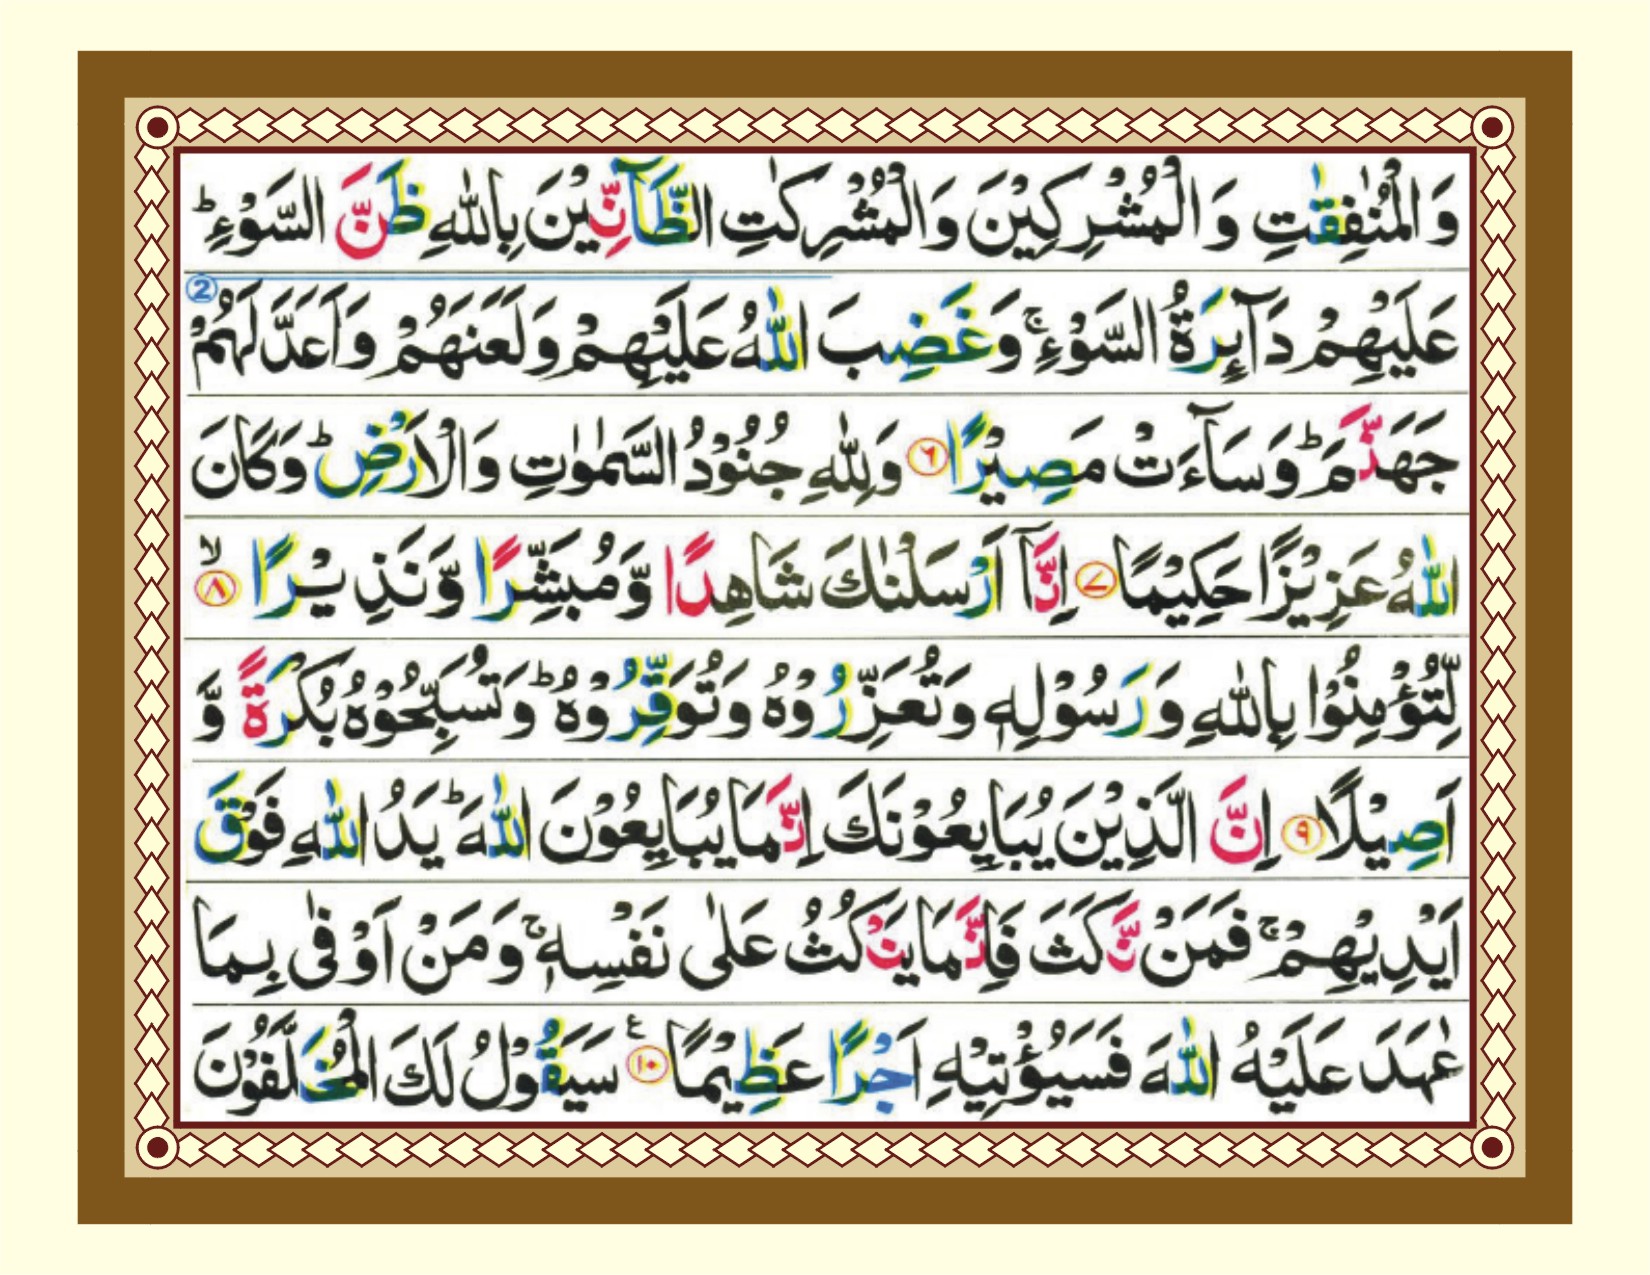 وَالْمُنٰفِقٰتِ وَالْمُشْرِكِيْنَ وَالْمُشْرِكٰتِ الظَّآنِّيْنَ بِاللّٰهِ ظَنَّ السَّوْءِ ؕ
2
عَلَيْهِمْ دَآىِٕرَةُ السَّوْءِ ۚ وَغَضِبَ اللّٰهُ عَلَيْهِمْ وَلَعَنَهُمْ وَاَعَدَّ لَهُمْ
جَهَنَّمَ ؕ وَسَآءَتْ مَصِيْرًا ۶ وَلِلّٰهِ جُنُوْدُ السَّمٰوٰتِ وَالْاَرْضِ ؕ وَكَانَ
اللّٰهُ عَزِيْزًا حَكِيْمًا ۷ اِنَّآ اَرْسَلْنٰكَ شَاهِدًا وَّمُبَشِّرًا وَّنَذِيْرًا ۙ ۸
لِّتُؤْمِنُوْا بِاللّٰهِ وَرَسُوْلِهٖ وَتُعَزِّرُوْهُ وَتُوَقِّرُوْهُ ؕ وَتُسَبِّحُوْهُ بُكْرَةً وَّ
اَصِيْلًا ۹ اِنَّ الَّذِيْنَ يُبَايِعُوْنَكَ اِنَّمَا يُبَايِعُوْنَ اللّٰهَ ؕ يَدُ اللّٰهِ فَوْقَ
اَيْدِيْهِمْ ۚ فَمَنْ نَّكَثَ فَاِنَّمَا يَنْكُثُ عَلٰى نَفْسِهٖ ۚ وَمَنْ اَوْفٰى بِمَا
عٰهَدَ عَلَيْهُ اللّٰهَ فَسَيُؤْتِيْهِ اَجْرًا عَظِيْمًا ۱۰ ع سَيَقُوْلُ لَكَ الْمُخَلَّفُوْنَ